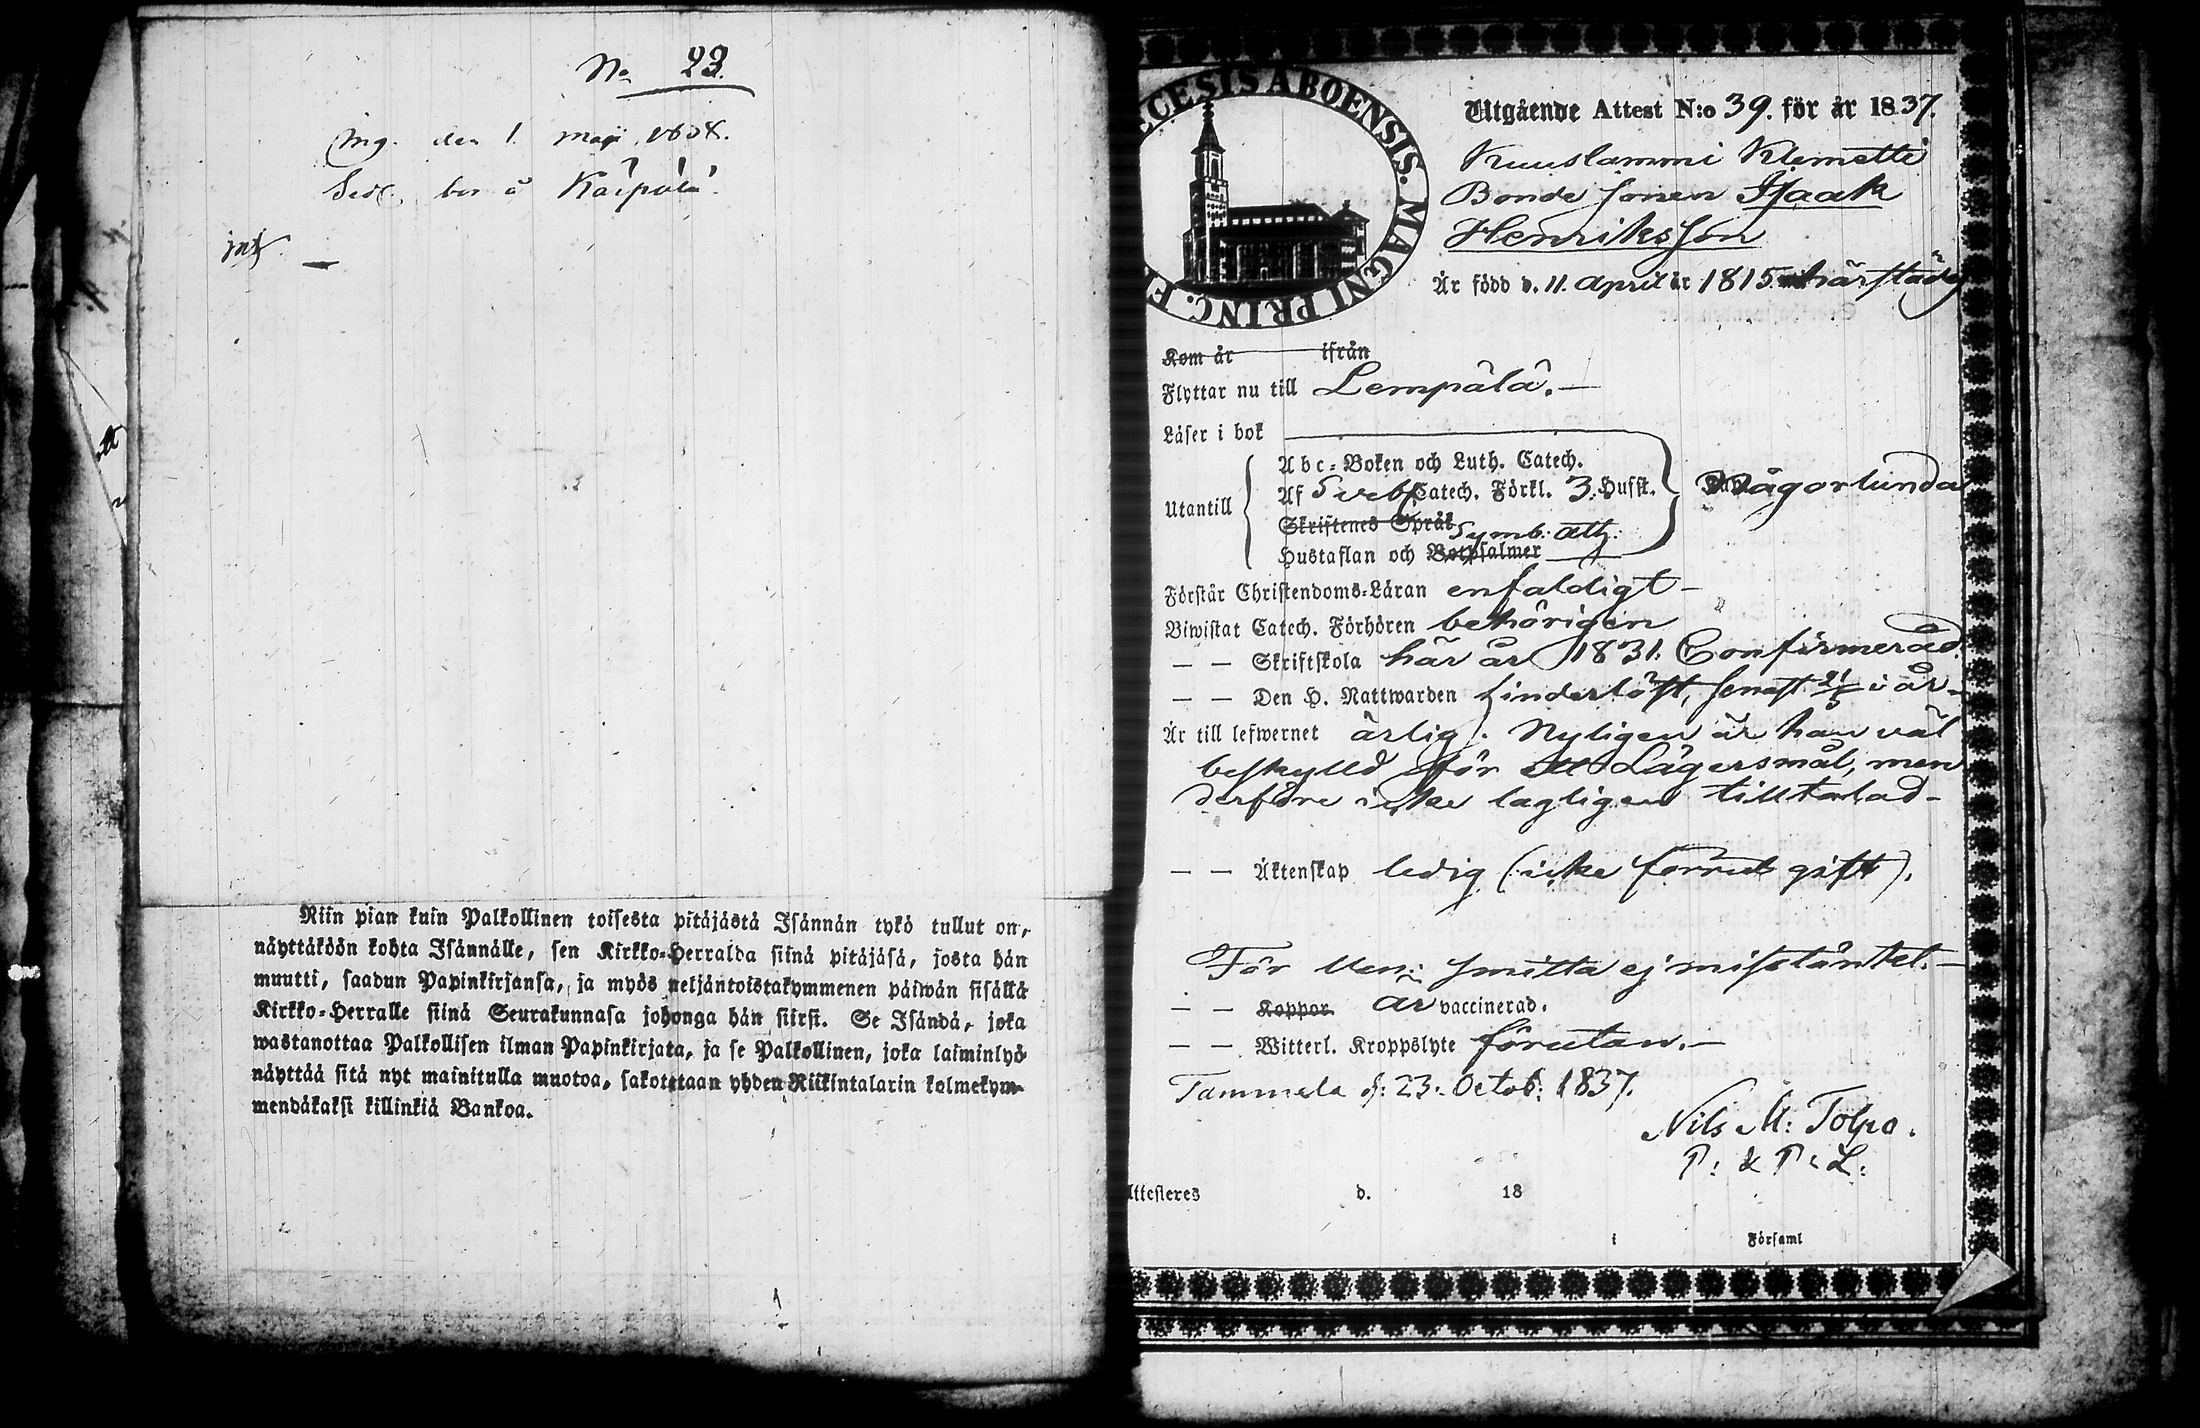 No 23.
Ing. den 1 Maji 1838.
Sed. bor å Kärpälä.
int. —
Niin pian kuin Palkollinen toisesta pitäjästä Isännän tykö tullut on,
näyttäköön kohta Isännälle, sen Kirkko-Herralda siinä pitäjäsä, josta hän
muutti, saadun Papinkirjansa, ja myös neljäntoistakymmenen päiwän sisällä
Kirkko-Herralle siinä Seurakunnasa johonga hän siirsi. Se Isändä, joka
wastanottaa Palkollisen ilman Papinkirjata, ja se Palkollinen, joka laiminlyö
näyttää sitä nyt mainitulla muotoa, sakotetaan yhden Riikintalarin kolmekym-
mendäkaksi killinkiä Bankoa.
ECESIS ABOENSIS. MAGNI PRINC. F
Utgående Attest N:o 39. för år 1837.
Kuuslammi Klemetti
Bonde sonen Isaak
Henriksson
Är född d. 11. April år 1815 härstädes
Kom år ifrån
Flyttar nu till Lempälä. —
Läser i bok
Utantill
Abc-Boken och Luth. Catech.
Af Svebil. Catech. Förkl. 3. Hufst.
Skriftenes Språk Symb: Ath:
Hustaflan och Botpsalmer
Någorlunda
Förstår Christendoms-Läran enfaldigt —
Biwistat Catech. Förhören behörigen
— — Skriftskola här år 1831. Confirmerad.
— — Den H. Nattwarden hinderlöst, senast 21/5 i år —
Är till lefwernet ärlig. Nyligen är han väl
beskylld för ett Lägersmål, men
derföre icke lagligen tilltalad —
— — Äktenskap ledig (icke förrut gift).
För Ven: smitta ej misstänkt. —
— — Koppor är vaccinerad.
— — Witterl. Kroppslyte förutan. —
Tammela d: 23. Octob: 1837.
Nils M: Tolpo.
P: & P: L:
Attesteres d. 18
i Församl